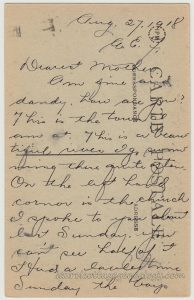 Aug. 27, 1918
Dearest Mother,
Am fine and
dandy. How are you?
This is the town I
am at. This is a beau
tiful river I go swim
ming there quite often.
On the left hand
corner is the church
I spoke to you about
last Sunday. You
can't see half of it
I had a time
Sunday the boys
CORRESPONDANCE
ADRESSE